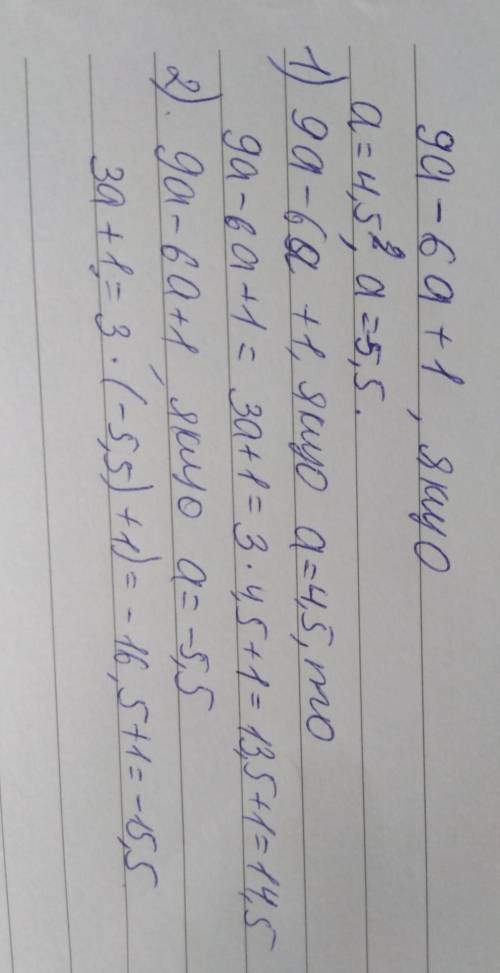 9a - 6a + 1, якщо
a = 4,5; a = -5,5.
1) 9a - 6a + 1, якщо a = 4,5, то
9a - 6a + 1 = 3a + 1 = 3 · 4,5 + 1 = 13,5 + 1 = 14,5
2). 9a - 6a + 1, якщо a = -5,5
3a + 1 = 3 · (-5,5) + 1) = -16,5 + 1 = -15,5.